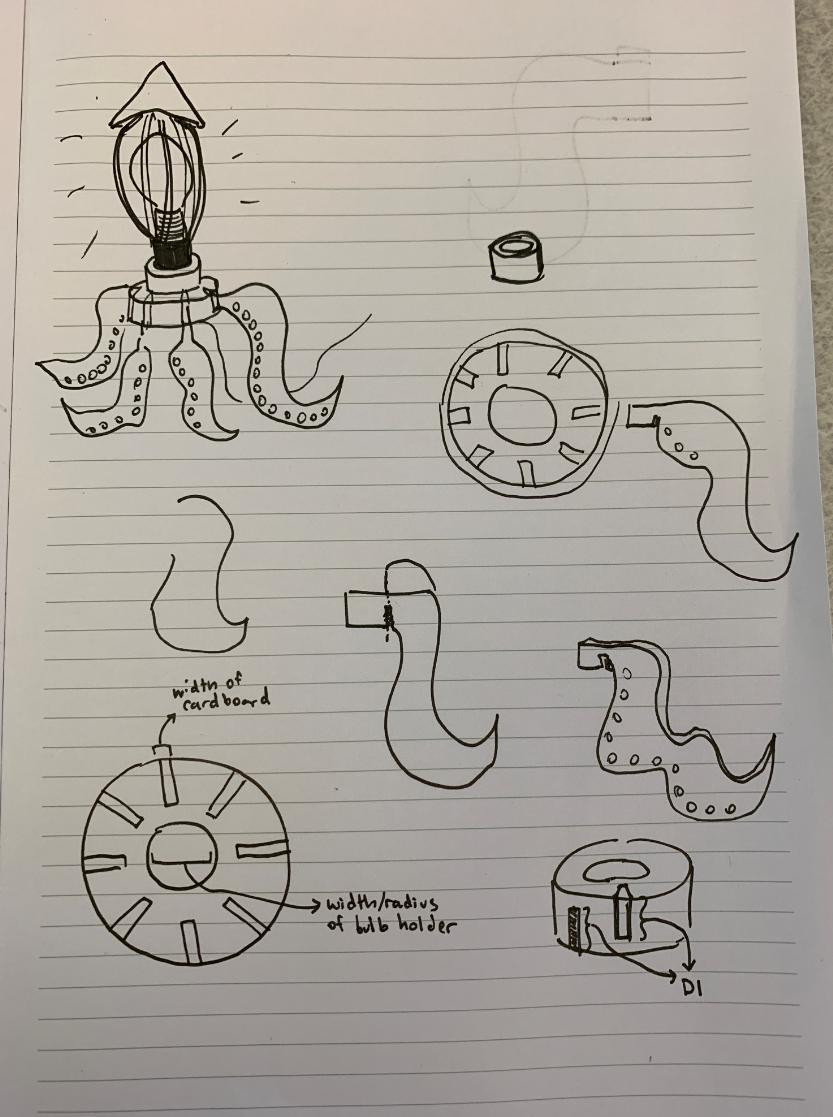 width of
cardboard
width/radius
of bulb holder
D1